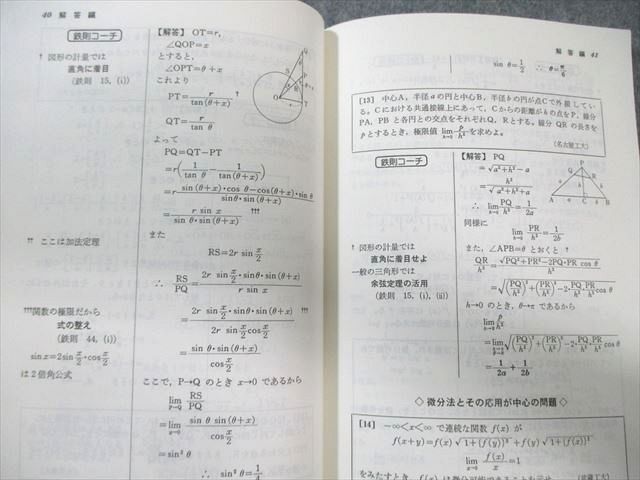 40 解答編
鉄則コーチ
† 図形の計量では
直角に着目
(鉄則 15, (i))
†† ここは加法定理
†††関数の極限だから
式の整え
(鉄則 44, (i))
sin x=2sin x/2・cos x/2
は2倍角公式
【解答】 OT=r,
∠QOP=x
とすると,
∠OPT=θ+x
これより
PT=r/tan(θ+x)
QT=r/tan θ
よって
PQ=QT−PT
=r(1/tan θ − 1/tan(θ+x))
=r sin(θ+x)・cos θ−cos(θ+x)・sin θ/sin θ・sin(θ+x)
=r sin x/sin θ・sin(θ+x) †††
また
RS=2r sin x/2
∴ RS/PQ=2r sin x/2・sin θ・sin(θ+x)/r sin x
=2r sin x/2・sin θ・sin(θ+x)/2r sin x/2 cos x/2 †††
=sin θ・sin(θ+x)/cos x/2
ここで, P→Q のとき x→0 であるから
lim P→Q RS/PQ
=lim x→0 sin θ sin(θ+x)/cos x/2
=sin² θ
∴ sin² θ=1/4
解答編 41
sin θ=1/2 ∴ θ=π/6
[13] 中心A, 半径 a の円と中心B, 半径 b の円が点Cで外接してい
る。Cにおける共通接線上にあって, Cからの距離が h の点をP, 線分
PA, PB と各円との交点をそれぞれQ, Rとする。線分 QR の長さを
p とするとき, 極限値 lim h→0 p/h² を求めよ。
(名古屋工大)
鉄則コーチ
† 図形の計量では
直角に着目せよ
一般の三角形では
余弦定理の活用
(鉄則 15, (i), (ii))
【解答】 PQ
=√a²+h²−a
=h²/√a²+h²+a
∴ lim h→0 PQ/h²=1/2a
同様に
lim h→0 PR/h²=1/2b
また, ∠APB=θ とおくと †
QR/h²=√PQ²+PR²−2PQ・PR cos θ/h²
=√(PQ/h²)²+(PR/h²)²−2・PQ/h²・PR/h² cos θ
h→0 のとき, θ→π であるから
lim h→0 p/h²
=lim √(PQ/h²)²+(PR/h²)²−2・PQ/h²・PR/h² cos θ
=1/2a+1/2b
◇ 微分法とその応用が中心の問題 ◇
[14] −∞<x<∞ で連続な関数 f(x) が
f(x+y)=f(x)√1+{f(y)}²+f(y)√1+{f(x)}²
lim x→0 f(x)/x=1